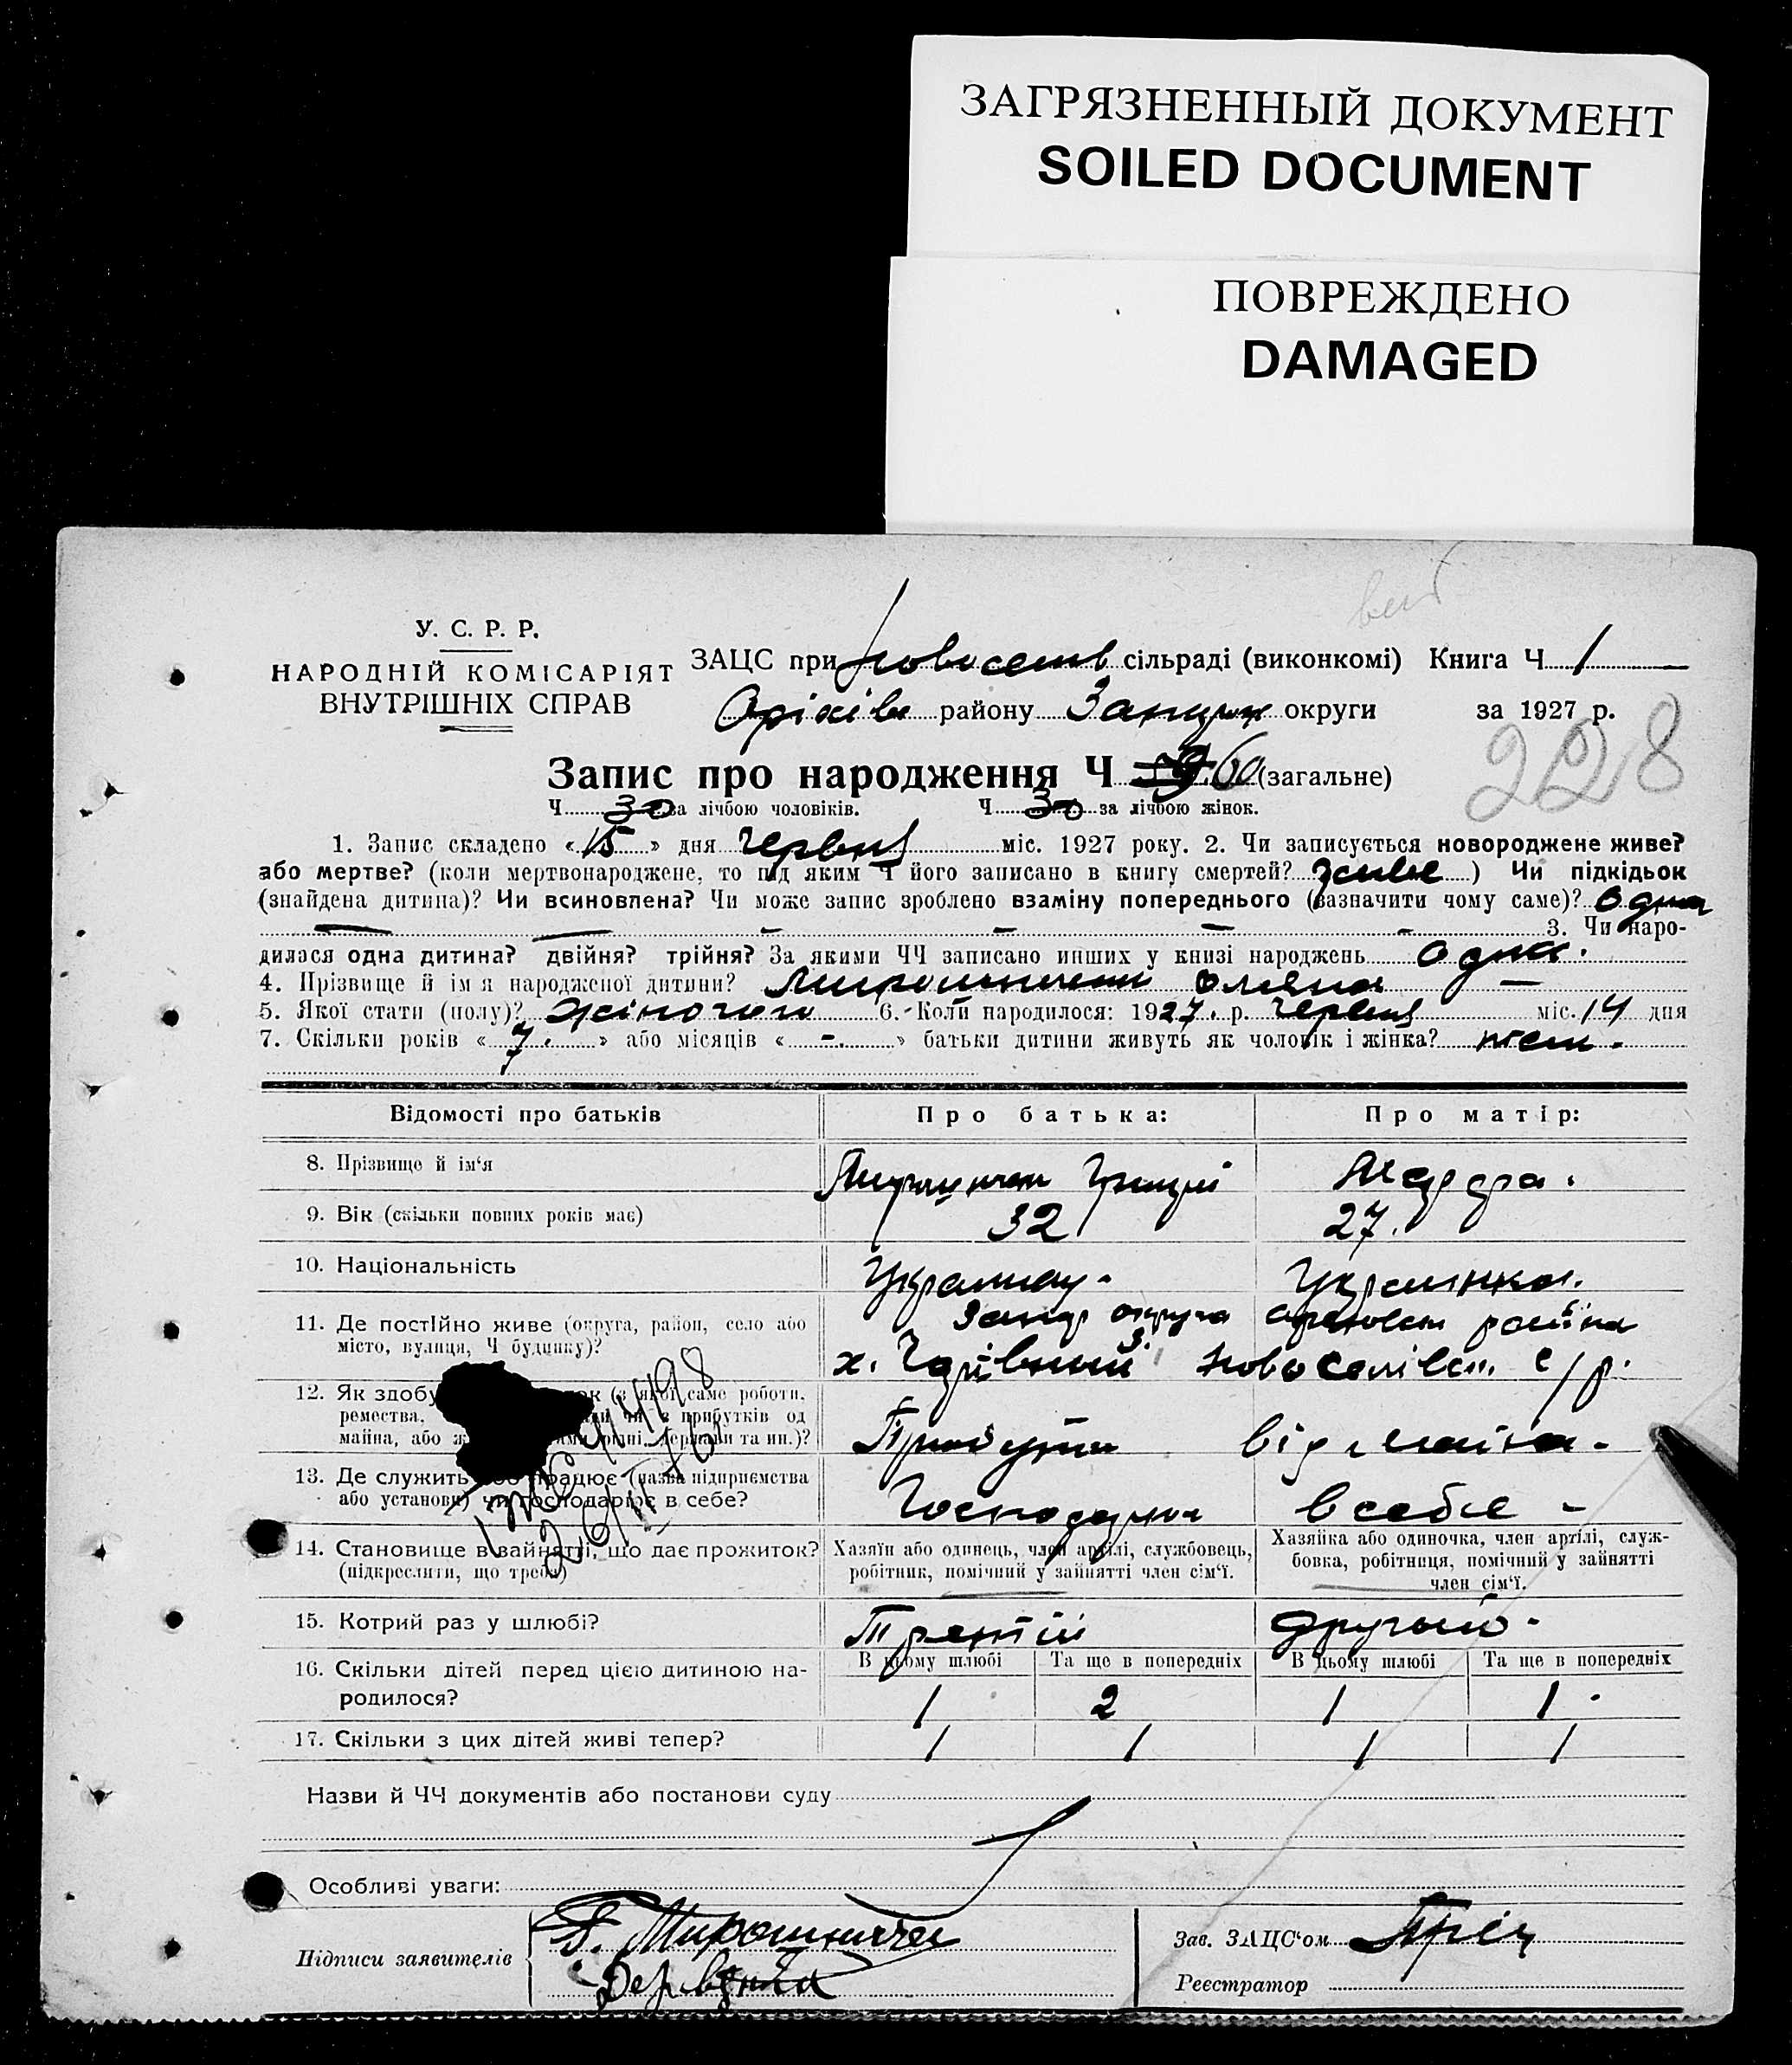 ЗАГРЯЗНЕННЫЙ ДОКУМЕНТ
SOILED DOCUMENT
ПОВРЕЖДЕНО
DAMAGED
У. С. Р. Р.
НАРОДНІЙ КОМІСАРІЯТ
ВНУТРІШНІХ СПРАВ
ЗАЦС при сільраді (виконкомі) Книга Ч 1
Оріхів району Запоріж округи за 1927 р.
228
Запис про народження Ч 60 (загальне)
Ч 30 за лічбою чоловіків. Ч 30 за лічбою жінок.
1. Запис складено «15» дня Червня міс. 1927 року. 2. Чи записується новороджене живе?
або мертве? (коли мертвонароджене, то під яким Ч його записано в книгу смертей? живе) Чи підкідьок
(знайдена дитина)? Чи всиновлена? Чи може запис зроблено взаміну попереднього (зазначити чому саме)? одна
— — — — — — 3. Чи наро-
дилася одна дитина? двійня? трійня? За якими ЧЧ записано инших у книзі народжень одна.
4. Прізвище й ім'я народженої дитини? Мирошниченко Олена —
5. Якої стати (полу)? жіночого 6. Коли народилося: 1927. р. Червня міс. 14 дня
7. Скільки років «7.» або місяців «-.» батьки дитини живуть як чоловік і жінка?
Відомості про батьків Про батька: Про матір:
8. Прізвище й ім'я Мирошничен Григорій
9. Вік (скільки повних років має) 32 27.
10. Національність Украинец - Украинка.
11. Де постійно живе (округа, район, село або Запор округа Ореховск района
місто, вулиця, Ч будинку)? х. Новоселівськ. с/р.
12. Як здобу к (з якої саме роботи,
ремества, чи з прибутків од
майна, або держави та ин.)? Прибутки від майна -
13. Де служить або працює (назва підприємства
або установи) чи господарює в себе? Господарює в себе -
14. Становище в зайнятті, що дає прожиток? Хазяїн або одинець, член артілі, службовець, Хазяйка або одиночка, член артілі, служ-
(підкреслити, що треба) робітник, помічний у зайнятті член сім'ї. бовка, робітниця, помічний у зайнятті
член сім'ї.
15. Котрий раз у шлюбі? Третій Другий -
16. Скільки дітей перед цією дитиною на- В цьому шлюбі Та ще в попередніх В цьому шлюбі Та ще в попередніх
родилося? 1 2 1 1
17. Скільки з цих дітей живі тепер? 1 1 1 1
Назви й ЧЧ документів або постанови суду
Особливі уваги:
Підписи заявителів Мирошничен
Зав. ЗАЦС'ом
Реєстратор